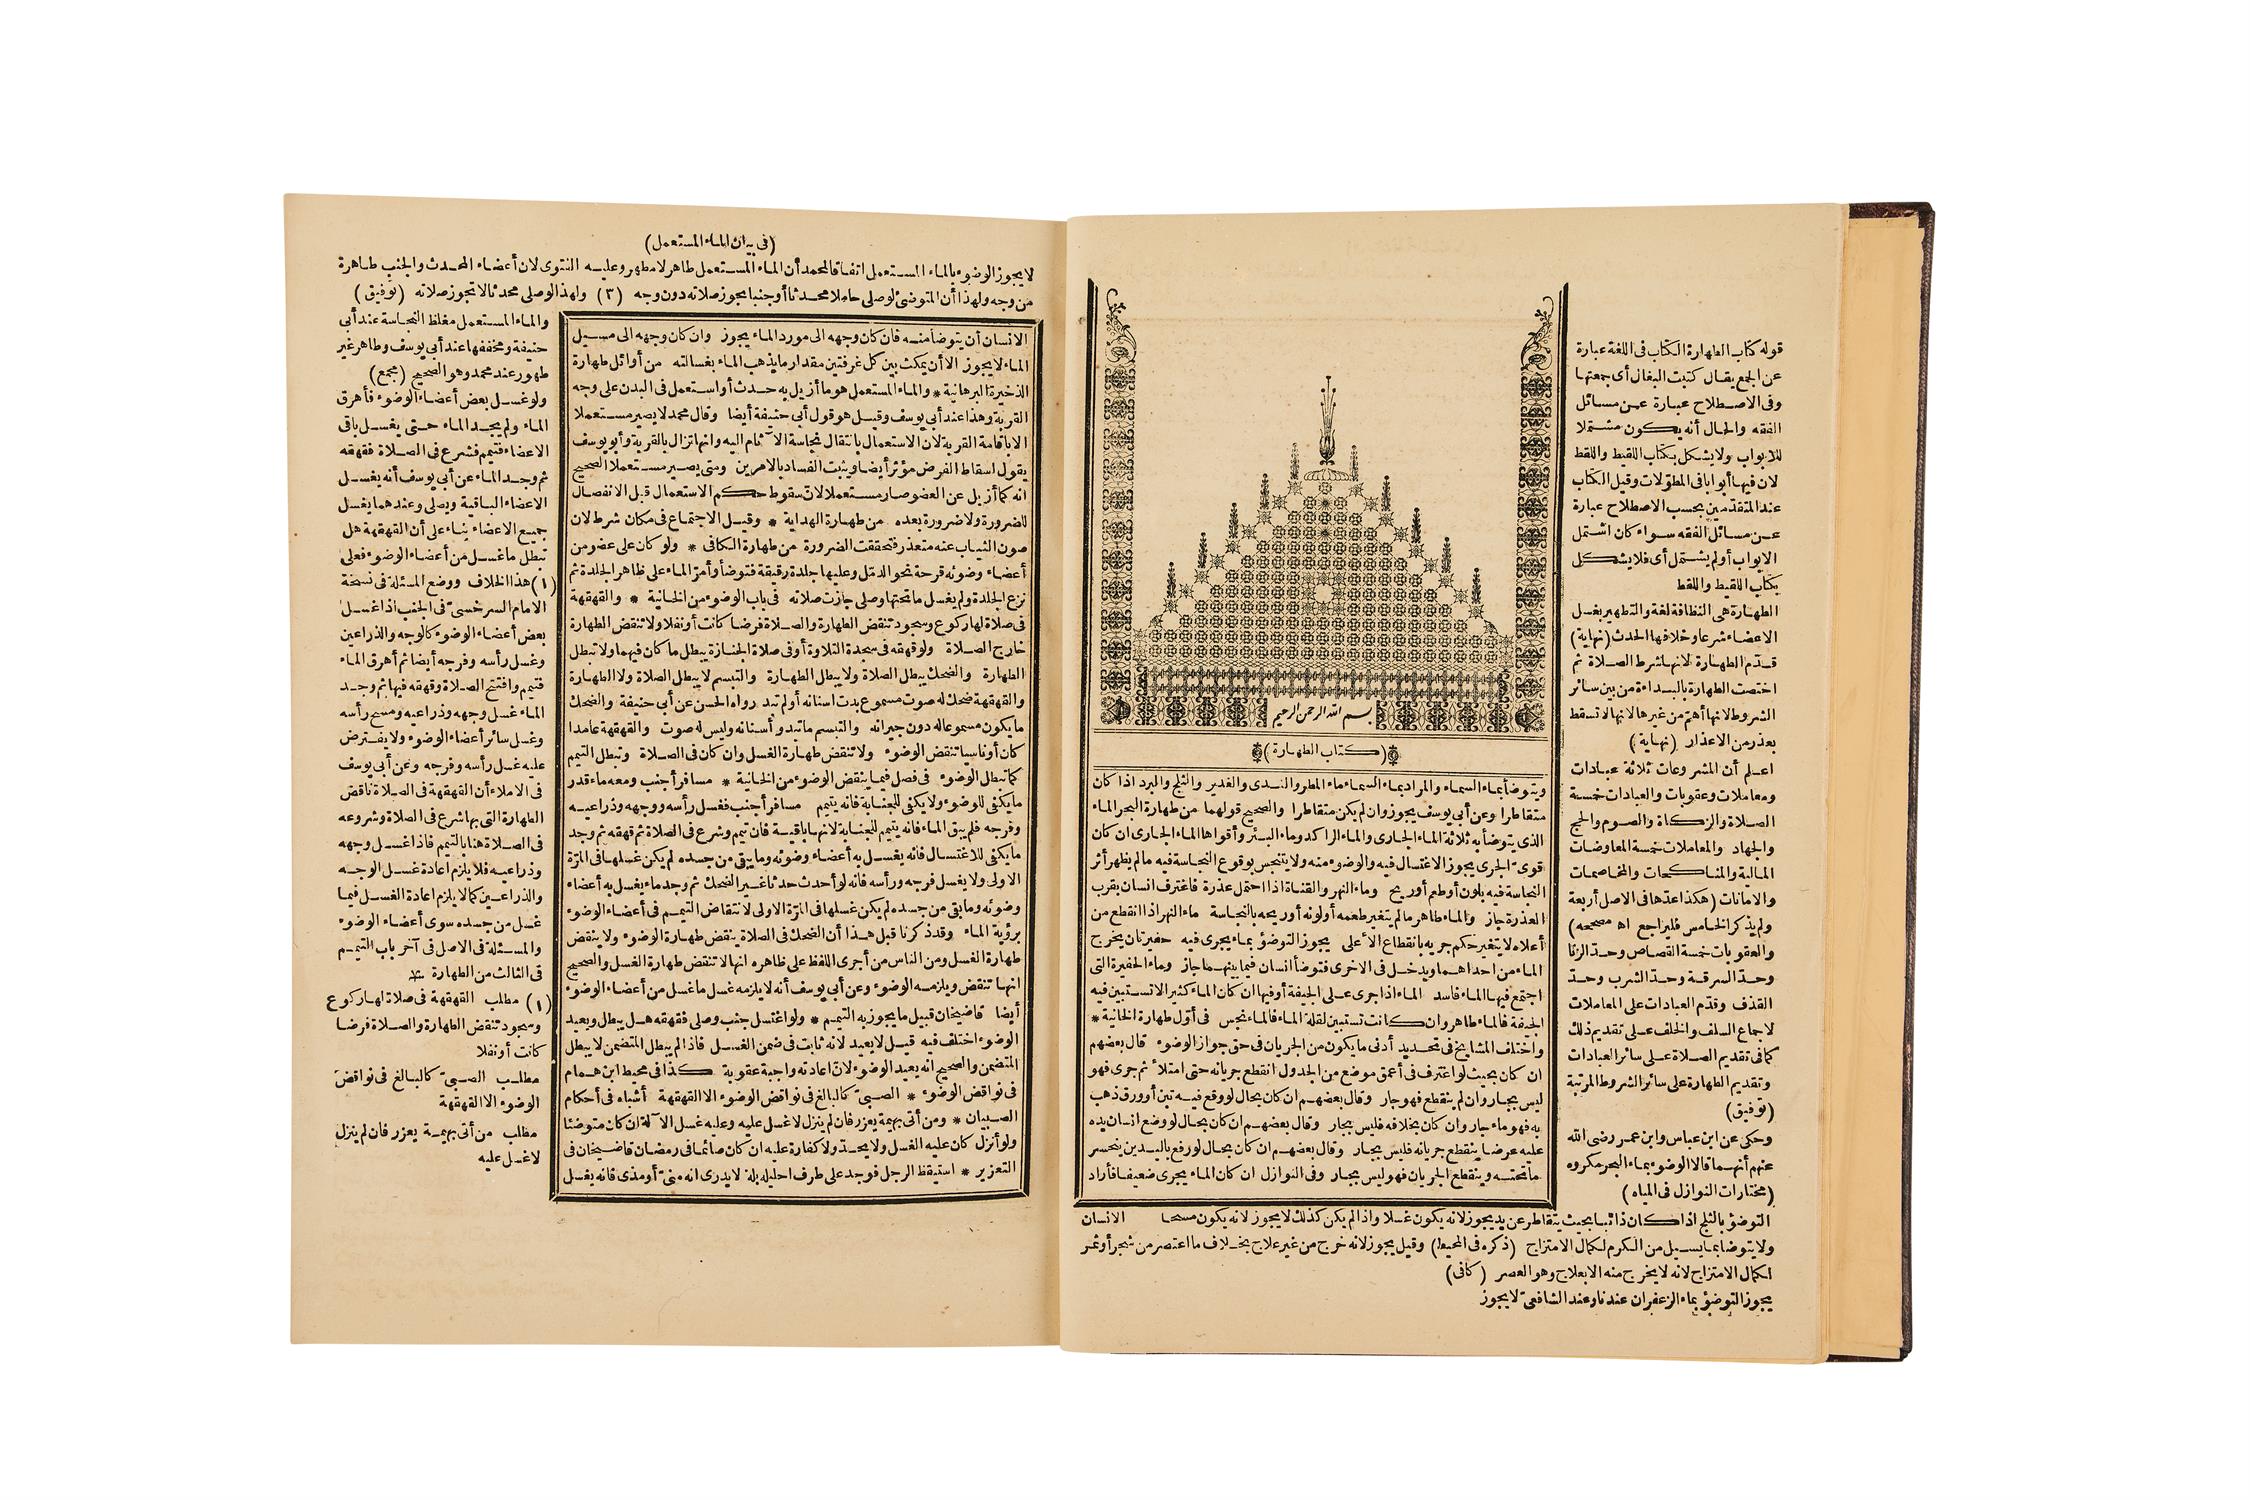 بسم الله الرحمن الرحيم
(كتاب الطهارة)
ويتوضأ بماء السماء والمراد بماء السماء ماء المطر والندى والغدير والثلج والبرد اذا كان
متقاطرا وعن أبي يوسف يجوز وان لم يكن متقاطرا والصحيح قولهما من طهارة البحر الماء
الذى يتوضأ به ثلاثة الماء الجارى والماء الراكد وماء البئر وأقواها الماء الجارى ان كان
قوى الجرى يجوز الاغتسال فيه والوضوء منه ولا يتنجس بوقوع النجاسة فيه ما لم يظهر أثر
النجاسة فيه بلون أو طعم أو ريح وماء النهر والقناة اذا احتمل عذرة فاغترف انسان بقرب
العذرة جاز والماء طاهر ما لم يتغير طعمه أو لونه أو ريحه بالنجاسة ماء النهر اذا انقطع من
أعلاه لا يتغير حكم جريه بانقطاع الأعلى يجوز التوضؤ بماء يجرى فيه حفيرتان يخرج
الماء من احداهما ويدخل فى الاخرى فتوضأ انسان فيما بينهما جاز وماء الحفيرة التى
اجتمع فيها الماء فاسد الماء اذا جرى على الجيفة أو فيها ان كان الماء كثيرا لا تستبين فيه
الجيفة فالماء طاهر وان كانت تستبين لقلة الماء فالماء نجس فى أول طهارة الخانية *
واختلف المشايخ فى تحديد أدنى ما يكون من الجريان فى حق جواز الوضوء قال بعضهم
ان كان بحيث لو اغترف فى أعمق موضع من الجدول انقطع جريانه حتى امتلأ ثم جرى فهو
ليس بجار وان لم ينقطع فهو جار وقال بعضهم ان كان بحال لو وقع فيه تبن أو ورق ذهب
به فهو ماء جار وان كان بخلافه فليس بجار وقال بعضهم ان كان بحال لو وضع انسان يده
عليه عرضا ينقطع جريانه فليس بجار وقال بعضهم ان كان بحال لو رفع باليدين ينحسر
ما تحته وينقطع الجريان فهو ليس بجار وفى النوازل ان كان الماء يجرى ضعيفا فأراد
الانسان
قوله كتاب الطهارة الكتاب فى اللغة عبارة
عن الجمع يقال كتبت البغال أى جمعتها
وفى الاصطلاح عبارة عن مسائل
الفقه والحال أنه يكون مشتملا
للابواب ولا يشكل بكتاب اللقيط واللقط
لان فيها أبوابا فى المطولات وقيل الكتاب
عند المتقدمين بحسب الاصطلاح عبارة
عن مسائل الفقه سواء كان اشتمل
الابواب أو لم يشتمل أى فلا يشكل
بكتاب اللقيط واللقط
الطهارة هى النظافة لغة والتطهير بغسل
الاعضاء شرعا وخلافها الحدث (نهاية)
قدم الطهارة لانها شرط الصلاة ثم
اختصت الطهارة بالبداءة من بين سائر
الشروط لانها أهم من غيرها لانها لا تسقط
بعذر من الاعذار (نهاية)
اعلم أن المشروعات ثلاثة عبادات
ومعاملات وعقوبات والعبادات خمسة
الصلاة والزكاة والصوم والحج
والجهاد والمعاملات خمسة المعاوضات
المالية والمناكحات والمخاصمات
والامانات (هكذا عدها فى الاصل أربعة
ولم يذكر الخامس فليراجع اه مصححه)
والعقوبات خمسة القصاص وحد الزنا
وحد السرقة وحد الشرب وحد
القذف وقدم العبادات على المعاملات
لاجماع السلف والخلف على تقديم ذلك
كما فى تقديم الصلاة على سائر العبادات
وتقديم الطهارة على سائر الشروط المرتبة
(توفيق)
وحكى عن ابن عباس وابن عمر رضى الله
عنهم أنهما قالا الوضوء بماء البحر مكروه
(مختارات النوازل فى المياه)
التوضؤ بالثلج اذا كان ذائبا بحيث يتقاطر عن يد يجوز لانه يكون غسلا واذا لم يكن كذلك لا يجوز لانه يكون مسحا
ولا يتوضأ بما يسيل من الكرم لكمال الامتزاج (ذكره فى المحيط) وقيل يجوز لانه خرج من غير علاج بخلاف ما اعتصر من شجر أو ثمر
لكمال الامتزاج لانه لا يخرج منه الا بعلاج وهو العصر (كافى)
يجوز التوضؤ بماء الزعفران عندنا وعند الشافعى لا يجوز
(فى بيان الماء المستعمل)
لا يجوز الوضوء بالماء المستعمل اتفاقا لمحمد أن الماء المستعمل طاهر لا مطهر وعليه الفتوى لان أعضاء المحدث والجنب طاهرة
من وجه ولهذا أن المتوضئ لو صلى حاملا محدثا أو جنبا يجوز صلاته دون وجه (٣) ولهذا لو صلى محدثا لا تجوز صلاته (توفيق)
الانسان أن يتوضأ منه فان كان وجهه الى مورد الماء يجوز وان كان وجهه الى مسيل
الماء لا يجوز الا أن يمكث بين كل غرفتين مقدار ما يذهب الماء بغسالته من أوائل طهارة
الذخيرة البرهانية * والماء المستعمل هو ما أزيل به حدث أو استعمل فى البدن على وجه
القربة وهذا عند أبي يوسف وقيل هو قول أبي حنيفة أيضا وقال محمد لا يصير مستعملا
الا باقامة القربة لان الاستعمال بانتقال نجاسة الآثام اليه وانها تزال بالقربة وأبو يوسف
يقول اسقاط الفرض مؤثر أيضا ويثبت الفساد بالامرين ومتى يصير مستعملا الصحيح
انه كما أزيل عن العضو صار مستعملا لان سقوط حكم الاستعمال قبل الانفصال
للضرورة ولا ضرورة بعده من طهارة الهداية * وقيل الاجتماع فى مكان شرط لان
صون الثياب عنه متعذر فتحققت الضرورة من طهارة الكافى * ولو كان على عضو من
أعضاء وضوئه قرحة نحو الدمل وعليها جلدة رقيقة فتوضأ وأمر الماء على ظاهر الجلدة ثم
نزع الجلدة ولم يغسل ما تحتها وصلى جازت صلاته فى باب الوضوء من الخانية * والقهقهة
فى صلاة لها ركوع وسجود تنقض الطهارة والصلاة فرضا كانت أو نفلا ولا تنقض الطهارة
خارج الصلاة ولو قهقه فى سجدة التلاوة أو فى صلاة الجنازة يبطل ما كان فيهما ولا تبطل
الطهارة والضحك يبطل الصلاة ولا يبطل الطهارة والتبسم لا يبطل الصلاة ولا الطهارة
والقهقهة ضحك له صوت مسموع بدت اسنانه أو لم تبد رواه الحسن عن أبي حنيفة والضحك
ما يكون مسموعا له دون جيرانه والتبسم ما تبدو أسنانه وليس له صوت والقهقهة عامدا
كان أو ناسيا تنقض الوضوء ولا تنقض طهارة الغسل وان كان فى الصلاة وتبطل التيمم
كما تبطل الوضوء فى فصل فيما ينقض الوضوء من الخانية * مسافر أجنب ومعه ماء قدر
ما يكفى للوضوء ولا يكفى للجنابة فانه يتيمم مسافر أجنب فغسل رأسه ووجهه وذراعيه
وفرجه فلم يبق الماء فانه يتيمم للجنابة لانها باقية فان تيمم وشرع فى الصلاة ثم قهقه ثم وجد
ما يكفى للاغتسال فانه يغسل به أعضاء وضوئه وما بقى من جسده لم يكن غسلها فى المرة
الاولى ولا يغسل فرجه ورأسه فانه لو أحدث حدثا غير الضحك ثم وجد ماء يغسل به أعضاء
وضوئه وما بقى من جسده لم يكن غسلها فى المرة الاولى لانتقاض التيمم فى أعضاء الوضوء
برؤية الماء وقد ذكرنا قبل هذا أن الضحك فى الصلاة ينقض طهارة الوضوء ولا ينقض
طهارة الغسل ومن الناس من أجرى اللفظ على ظاهره انها لا تنقض طهارة الغسل والصحيح
انها تنقض ويلزمه الوضوء وعن أبي يوسف أنه لا يلزمه غسل ما غسل من أعضاء الوضوء
أيضا قاضيخان قبيل ما يجوز به التيمم * ولو اغتسل جنب وصلى فقهقه هل يبطل ويعيد
الوضوء اختلف فيه قيل لا يعيد لانه ثابت فى ضمن الغسل فاذا لم يبطل المتضمن لا يبطل
المتضمن والصحيح انه يعيد الوضوء لان اعادته واجبة عقوبة كذا فى محيط ابن همام
فى نواقض الوضوء * الصبى كالبالغ فى نواقض الوضوء الا القهقهة أشباه فى أحكام
الصبيان * ومن أتى بهيمة يعزر فان لم ينزل لا غسل عليه وعليه غسل الآلة ان كان متوضئا
ولو أنزل كان عليه الغسل ولا يحد ولا كفارة عليه ان كان صائما فى رمضان قاضيخان فى
التعزير * استيقظ الرجل فوجد على طرف احليله بلة لا يدرى انه منى أو مذى فانه يغسل
والماء المستعمل مغلظ النجاسة عند أبي
حنيفة ومخففها عند أبي يوسف وطاهر غير
طهور عند محمد وهو الصحيح (مجمع)
ولو غسل بعض أعضاء الوضوء فأهرق
الماء ولم يجد الماء حتى يغسل باقى
الاعضاء فتيمم فشرع فى الصلاة فقهقه
ثم وجد الماء عن أبي يوسف أنه يغسل
الاعضاء الباقية ويصلى وعندهما يغسل
جميع الاعضاء بناء على أن القهقهة هل
تبطل ما غسل من أعضاء الوضوء فعلى
(١) هذا الخلاف ووضع المسئلة فى نسخة
الامام السرخسى فى الجنب اذا غسل
بعض أعضاء الوضوء كالوجه والذراعين
وغسل رأسه وفرجه أيضا ثم أهرق الماء
فتيمم وافتتح الصلاة وقهقه فيها ثم وجد
الماء غسل وجهه وذراعيه ومسح رأسه
وغسل سائر أعضاء الوضوء ولا يفترض
عليه غسل رأسه وفرجه وعن أبي يوسف
فى الاملاء أن القهقهة فى الصلاة ناقض
الطهارة التى بها شرع فى الصلاة وشروعه
فى الصلاة هنا بالتيمم فاذا غسل وجهه
وذراعيه فلا يلزم اعادة غسل الوجه
والذراعين كما لا يلزم اعادة الغسل فيما
غسل من جسده سوى أعضاء الوضوء
والمسئلة فى الاصل فى آخر باب التيمم
فى الثالث من الطهارة
(١) مطلب القهقهة فى صلاة لها ركوع
وسجود تنقض الطهارة والصلاة فرضا
كانت أو نفلا
مطلب الصبى كالبالغ فى نواقض
الوضوء الا القهقهة
مطلب من أتى بهيمة يعزر فان لم ينزل
لا غسل عليه